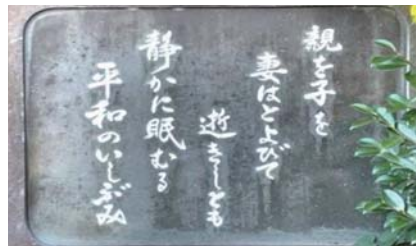 親を子を
妻はとよびて
逝きしとも
静かに眠むる
平和のいしぶみ